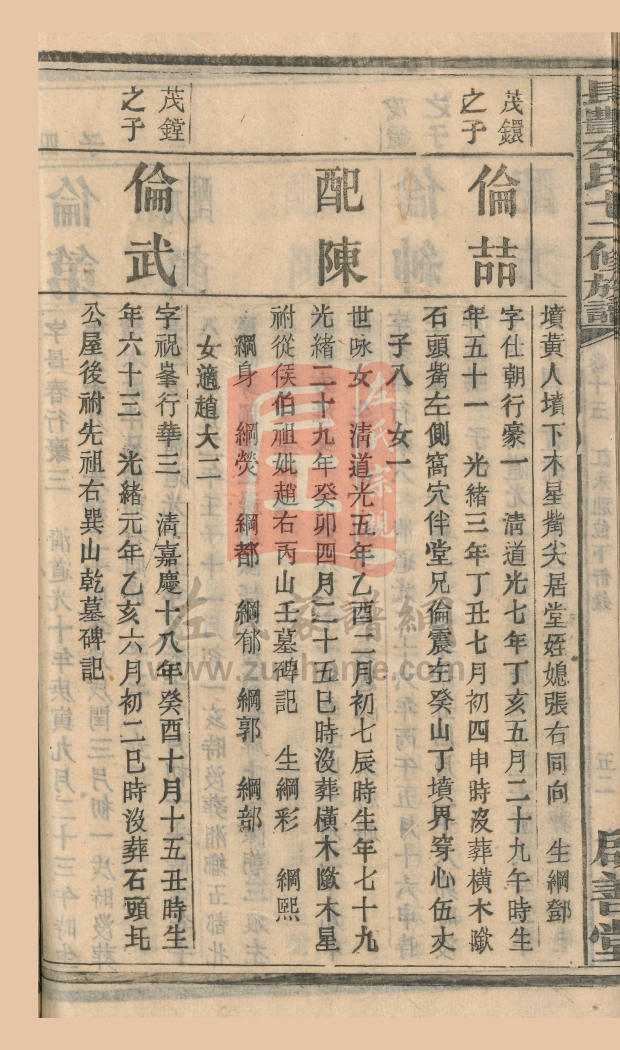 長豐左氏七二修族譜
啟善堂
墳黃人墳下木星嘴尖居堂姪媳張右同向　生綱鄧
茂鐶之子
倫喆
字仕朝行豪一　清道光七年丁亥五月二十九午時生
年五十一　光緒三年丁丑七月初四申時沒葬橫木歞
石頭嘴左側窩穴伴堂兄倫震左癸山丁墳界穿心伍丈
子八　女一
配陳
世咏女　清道光五年乙酉二月初七辰時生年七十九
光緒二十九年癸卯四月二十五巳時沒葬橫木歞木星
祔從侯伯祖妣趙右丙山壬墓碑記　生綱彩　綱熙
綱身　綱熒　綱都　綱郁　綱郭　綱部
女適趙大二
茂鏜之子
倫武
字祝峯行華三　清嘉慶十八年癸酉十月十五丑時生
年六十三　光緒元年乙亥六月初二巳時沒葬石頭圫
公屋後祔先祖右巽山乾墓碑記
左氏宗親
左氏族譜網
www.zuojiahome.com